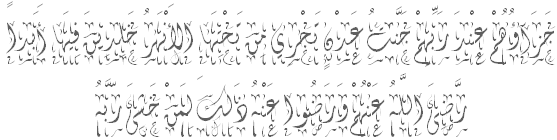 جَزَاؤُهُمْ عِنْدَ رَبِّهِمْ جَنَّتُ عَدْنٍ تَجْرِي مِنْ تَحْتِهَا الأَنْهَرُ خَلِدِينَ فِيهَا أَبَداً
رَّضِيَ اللَّهُ عَنْهُمْ وَرَضُوا عَنْهُ ذَلِكَ لِمَنْ خَشِيَ رَبَّهُ